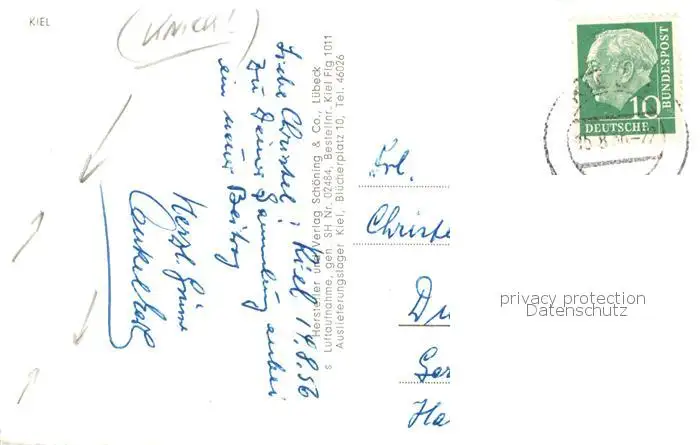 KIEL
(Knick!)
Liebe Christel, Kiel 14.8.56
zu Deiner Sammlung anbei
ein neuer Beitrag
Herzl. Grüsse
Onkel
Hersteller und Verlag Schöning & Co., Lübeck
s Luftaufnahme, gen. SH Nr. 02484, Bestellnr. Kiel Flg 1011
Auslieferungslager Kiel, Blücherplatz 10, Tel. 46026
10
DEUTSCHE
BUNDESPOST
Frl.
Christe
Du
Ger
Ha
privacy protection
Datenschutz